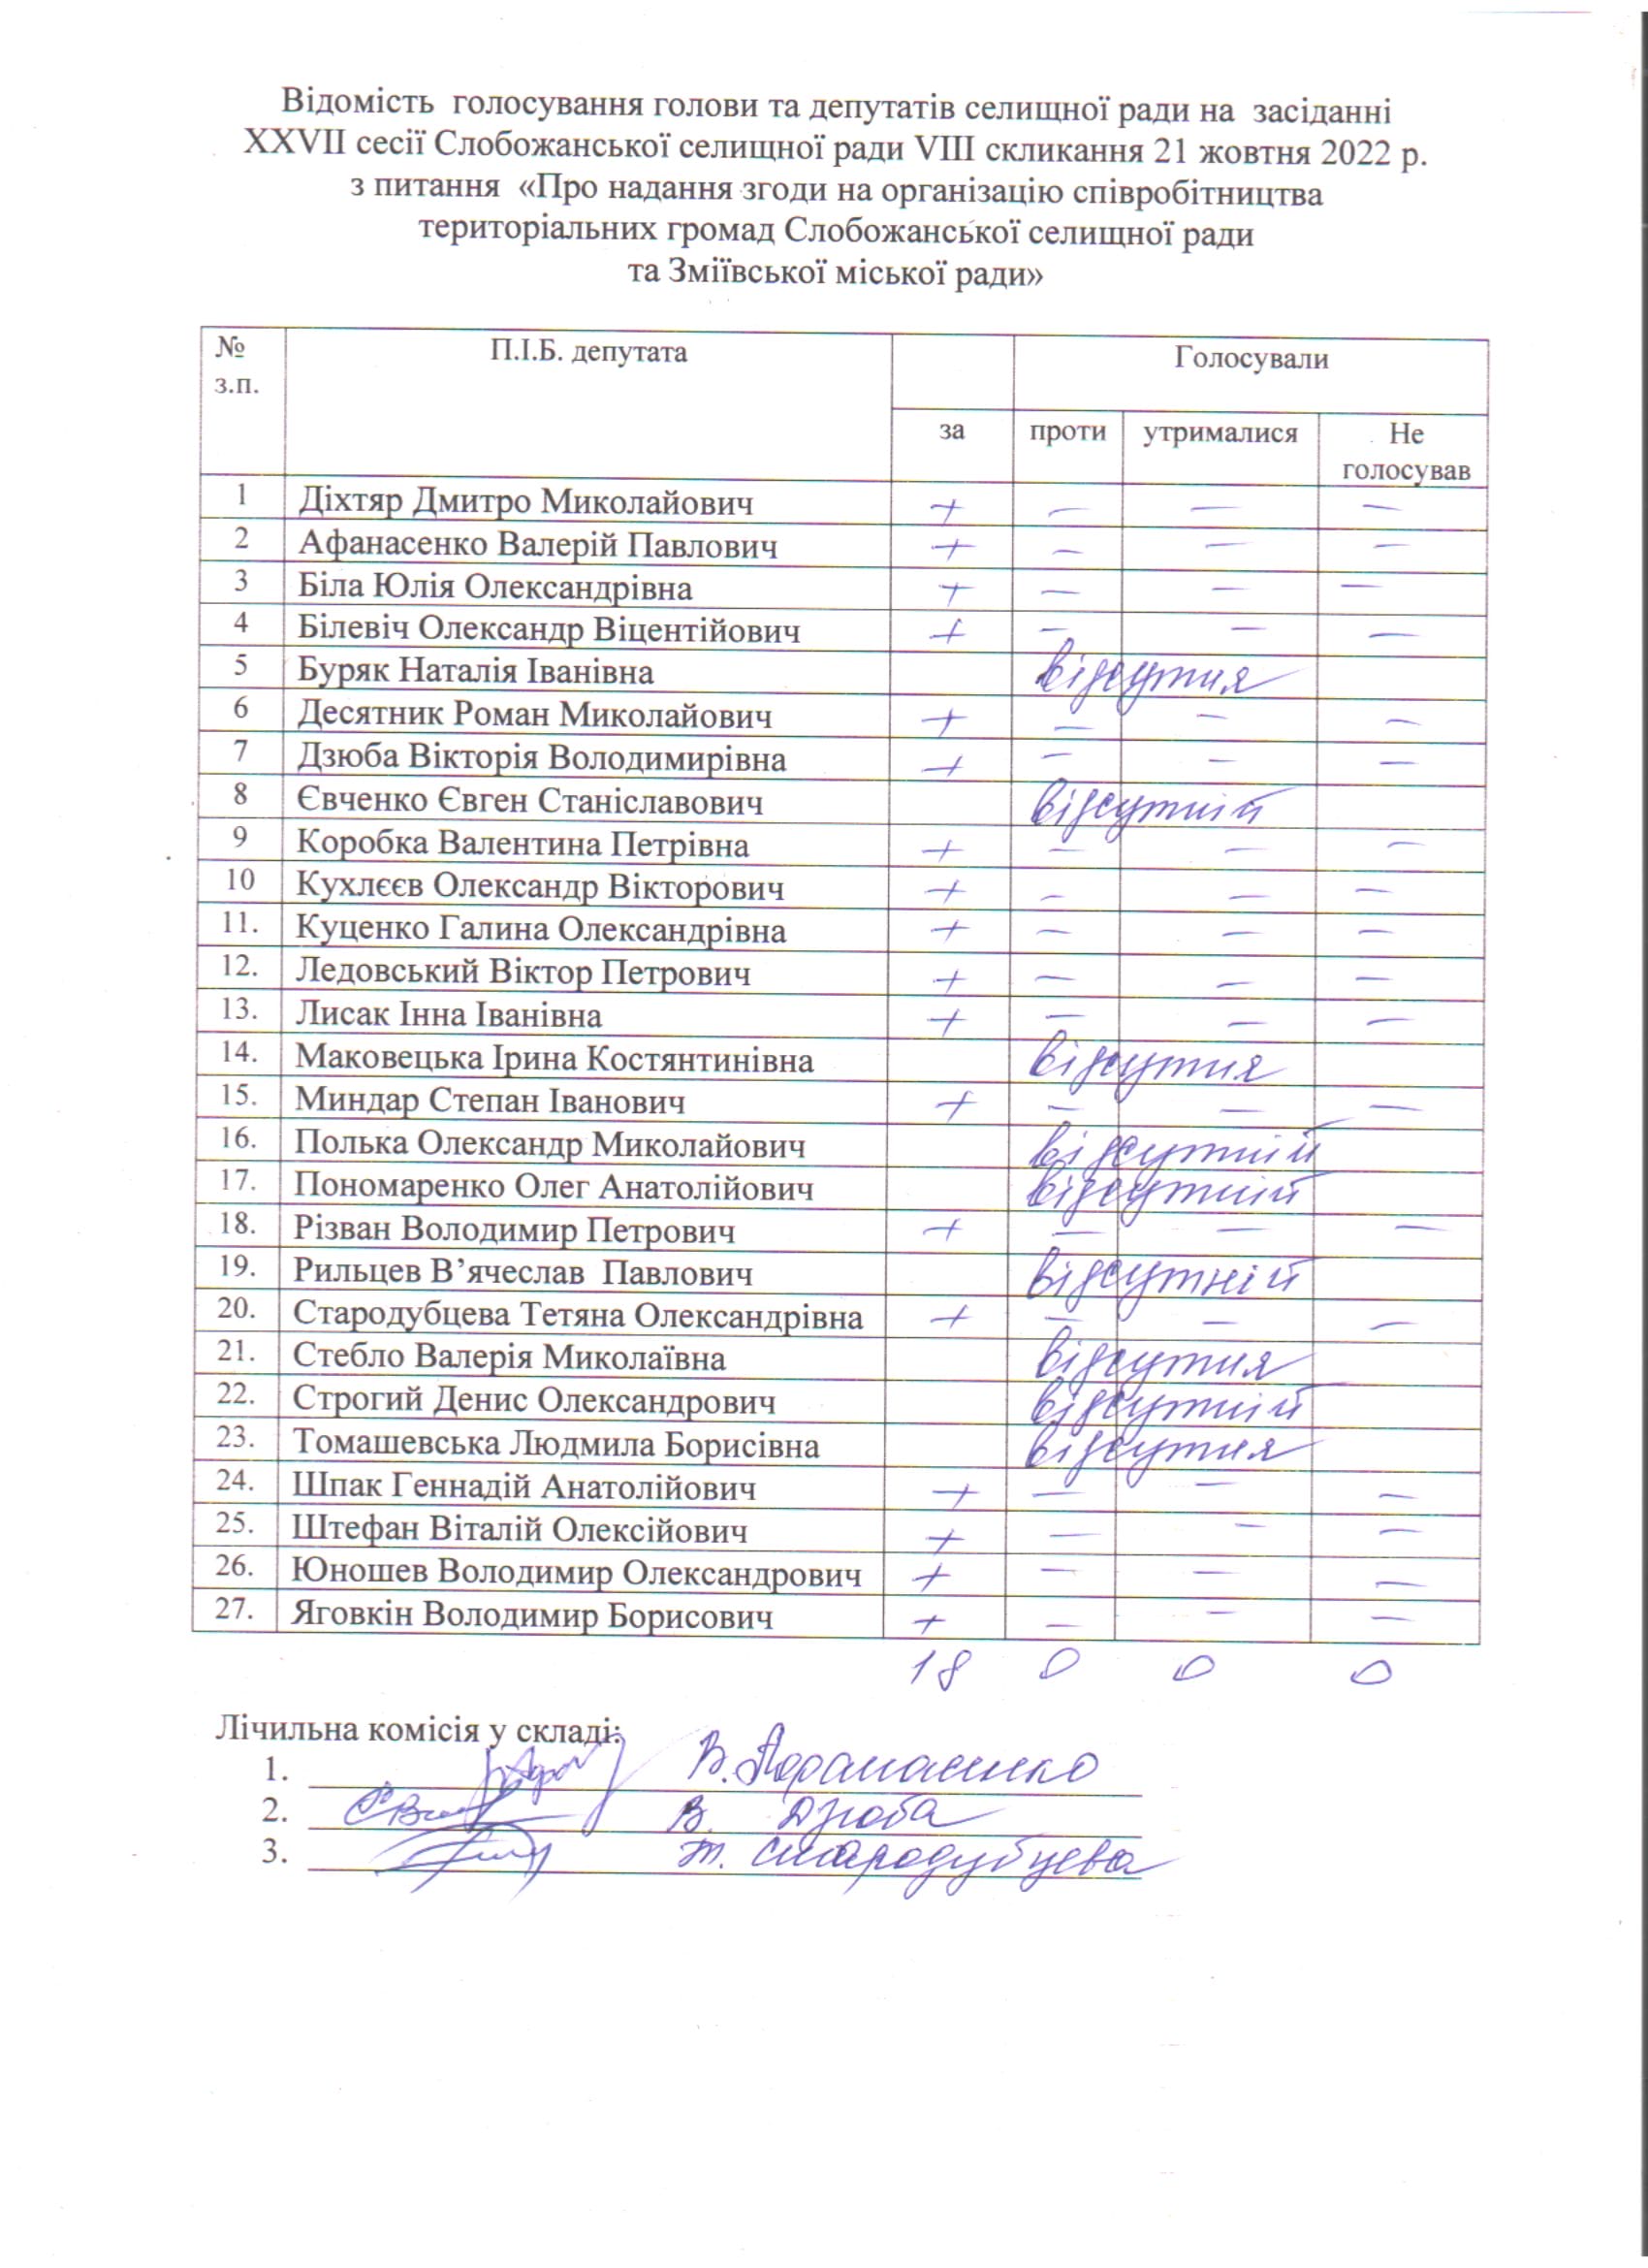 Відомість голосування голови та депутатів селищної ради на засіданні
XXVII сесії Слобожанської селищної ради VIII скликання 21 жовтня 2022 р.
з питання «Про надання згоди на організацію співробітництва
територіальних громад Слобожанської селищної ради
та Зміївської міської ради»
№ з.п. П.І.Б. депутата Голосували
за проти утрималися Не голосував
1 Діхтяр Дмитро Миколайович + — — —
2 Афанасенко Валерій Павлович + — — —
3 Біла Юлія Олександрівна + — — —
4 Білевіч Олександр Віцентійович + — — —
5 Буряк Наталія Іванівна відсутня
6 Десятник Роман Миколайович + — — —
7 Дзюба Вікторія Володимирівна + — — —
8 Євченко Євген Станіславович відсутній
9 Коробка Валентина Петрівна + — — —
10 Кухлєєв Олександр Вікторович + — — —
11. Куценко Галина Олександрівна + — — —
12. Ледовський Віктор Петрович + — — —
13. Лисак Інна Іванівна + — — —
14. Маковецька Ірина Костянтинівна відсутня
15. Миндар Степан Іванович + — — —
16. Полька Олександр Миколайович відсутній
17. Пономаренко Олег Анатолійович відсутній
18. Різван Володимир Петрович + — — —
19. Рильцев В’ячеслав Павлович відсутній
20. Стародубцева Тетяна Олександрівна + — — —
21. Стебло Валерія Миколаївна відсутня
22. Строгий Денис Олександрович відсутній
23. Томашевська Людмила Борисівна відсутня
24. Шпак Геннадій Анатолійович + — — —
25. Штефан Віталій Олексійович + — — —
26. Юношев Володимир Олександрович + — — —
27. Яговкін Володимир Борисович + — — —
18 0 0 0
Лічильна комісія у складі:
1. В. Афанасенко
2. В. Дзюба
3. Т. Стародубцева